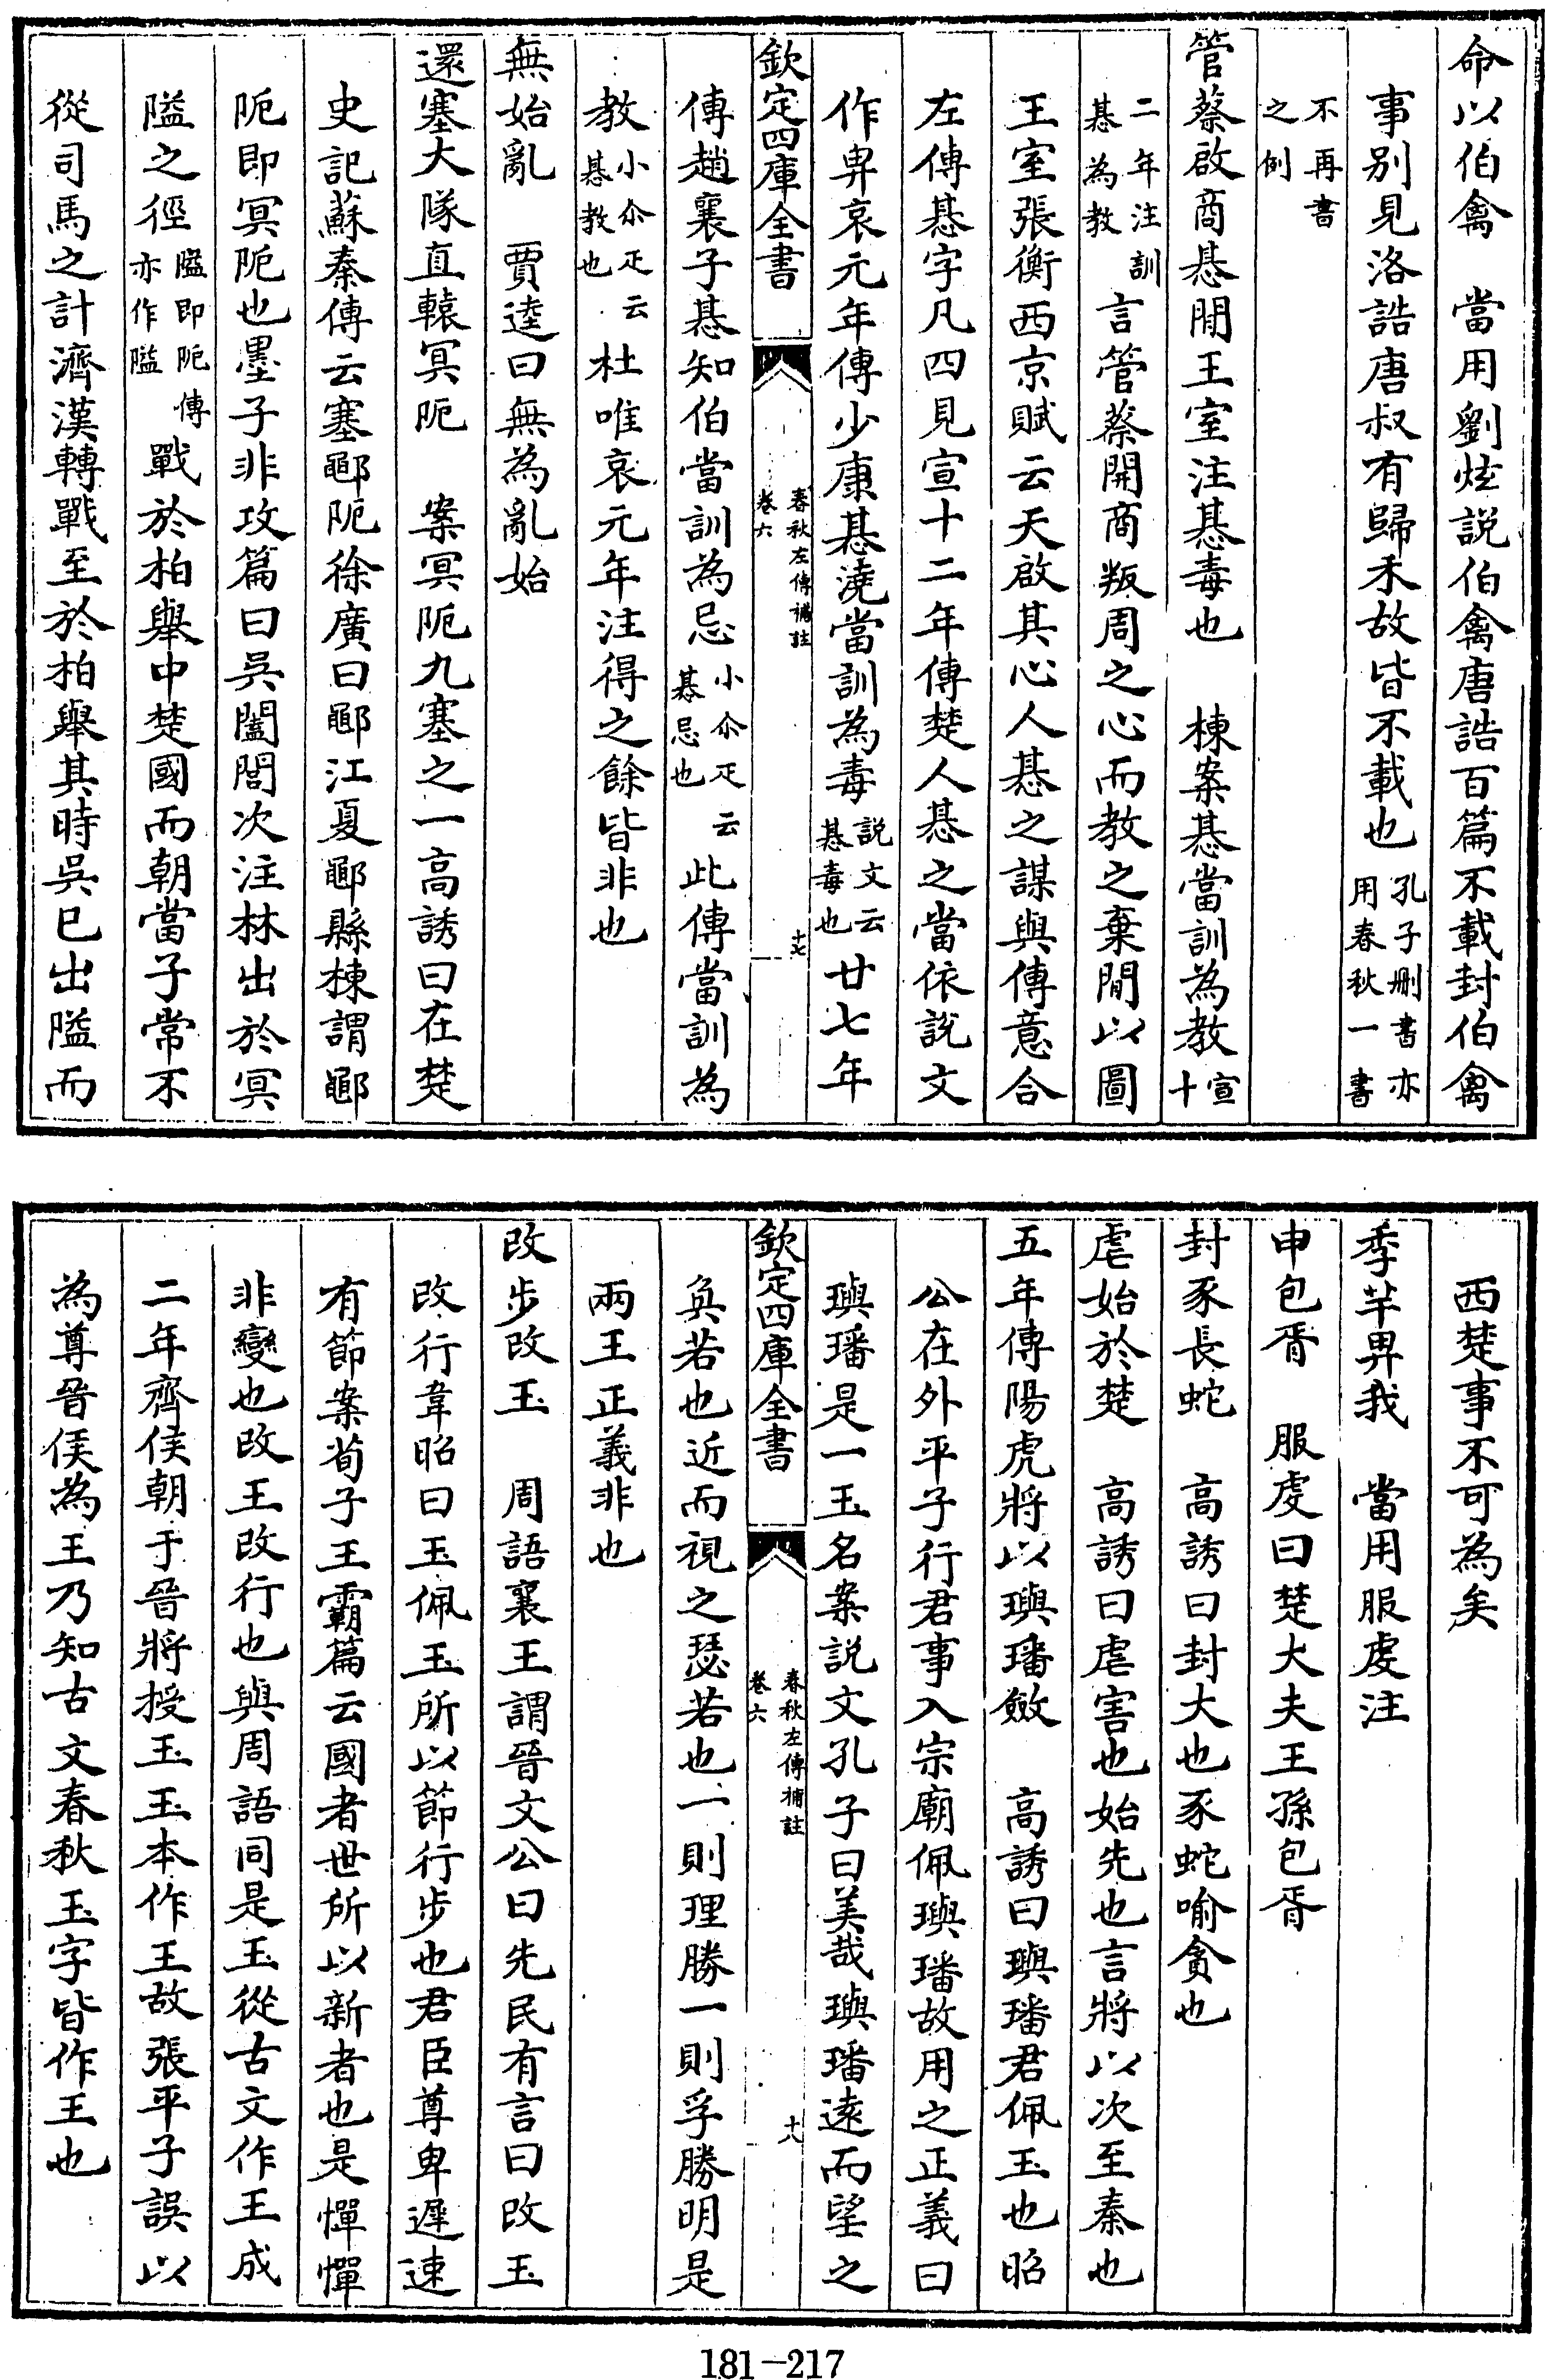 命以伯禽　當用劉炫説伯禽唐誥百篇不載封伯禽
事别見洛誥唐叔有歸禾故皆不載也孔子刪書亦用春秋一書
不再書之例
管蔡啟商惎閒王室注惎毒也　棟案惎當訓為教宣十
二年注訓惎為教言管蔡開商叛周之心而教之棄閒以圖
王室張衡西京賦云天啟其心人惎之謀與傳意合
左傳惎字凡四見宣十二年傳楚人惎之當依説文
作𢌿哀元年傳少康惎澆當訓為毒説文云惎毒也廿七年
欽定四庫全書
春秋左傳補註
卷六
十七
傳趙襄子惎知伯當訓為忌小尒疋云惎忌也此傳當訓為
教小尒疋云惎教也杜唯哀元年注得之餘皆非也
無始亂　賈逵曰無為亂始
還塞大隊直轅冥阨　案冥阨九塞之一高誘曰在楚
史記蘇秦傳云塞鄳阨徐廣曰鄳江夏鄳縣棟謂鄳
阨即冥阨也墨子非攻篇曰吳闔閭次注林出於冥
隘之徑隘即阨傳亦作隘戰於柏舉中楚國而朝當子常不
從司馬之計濟漢轉戰至於柏舉其時吳已出隘而
西楚事不可為矣
季芈畀我　當用服虔注
申包胥　服虔曰楚大夫王孫包胥
封豕長蛇　高誘曰封大也豕蛇喻貪也
虐始於楚　高誘曰虐害也始先也言將以次至秦也
五年傳陽虎將以璵璠斂　高誘曰璵璠君佩玉也昭
公在外平子行君事入宗廟佩璵璠故用之正義曰
璵璠是一玉名案説文孔子曰美哉璵璠遠而望之
欽定四庫全書
春秋左傳補註
卷六
十八
奐若也近而視之瑟若也一則理勝一則孚勝明是
兩王正義非也
改步改玉　周語襄王謂晉文公曰先民有言曰改玉
改行韋昭曰玉佩玉所以節行步也君臣尊卑遲速
有節案荀子王霸篇云國者世所以新者也是憚憚
非變也改王改行也與周語同是玉從古文作王成
二年齊侯朝于晉將授玉玉本作王故張平子誤以
為尊晉侯為王乃知古文春秋玉字皆作王也
181-217